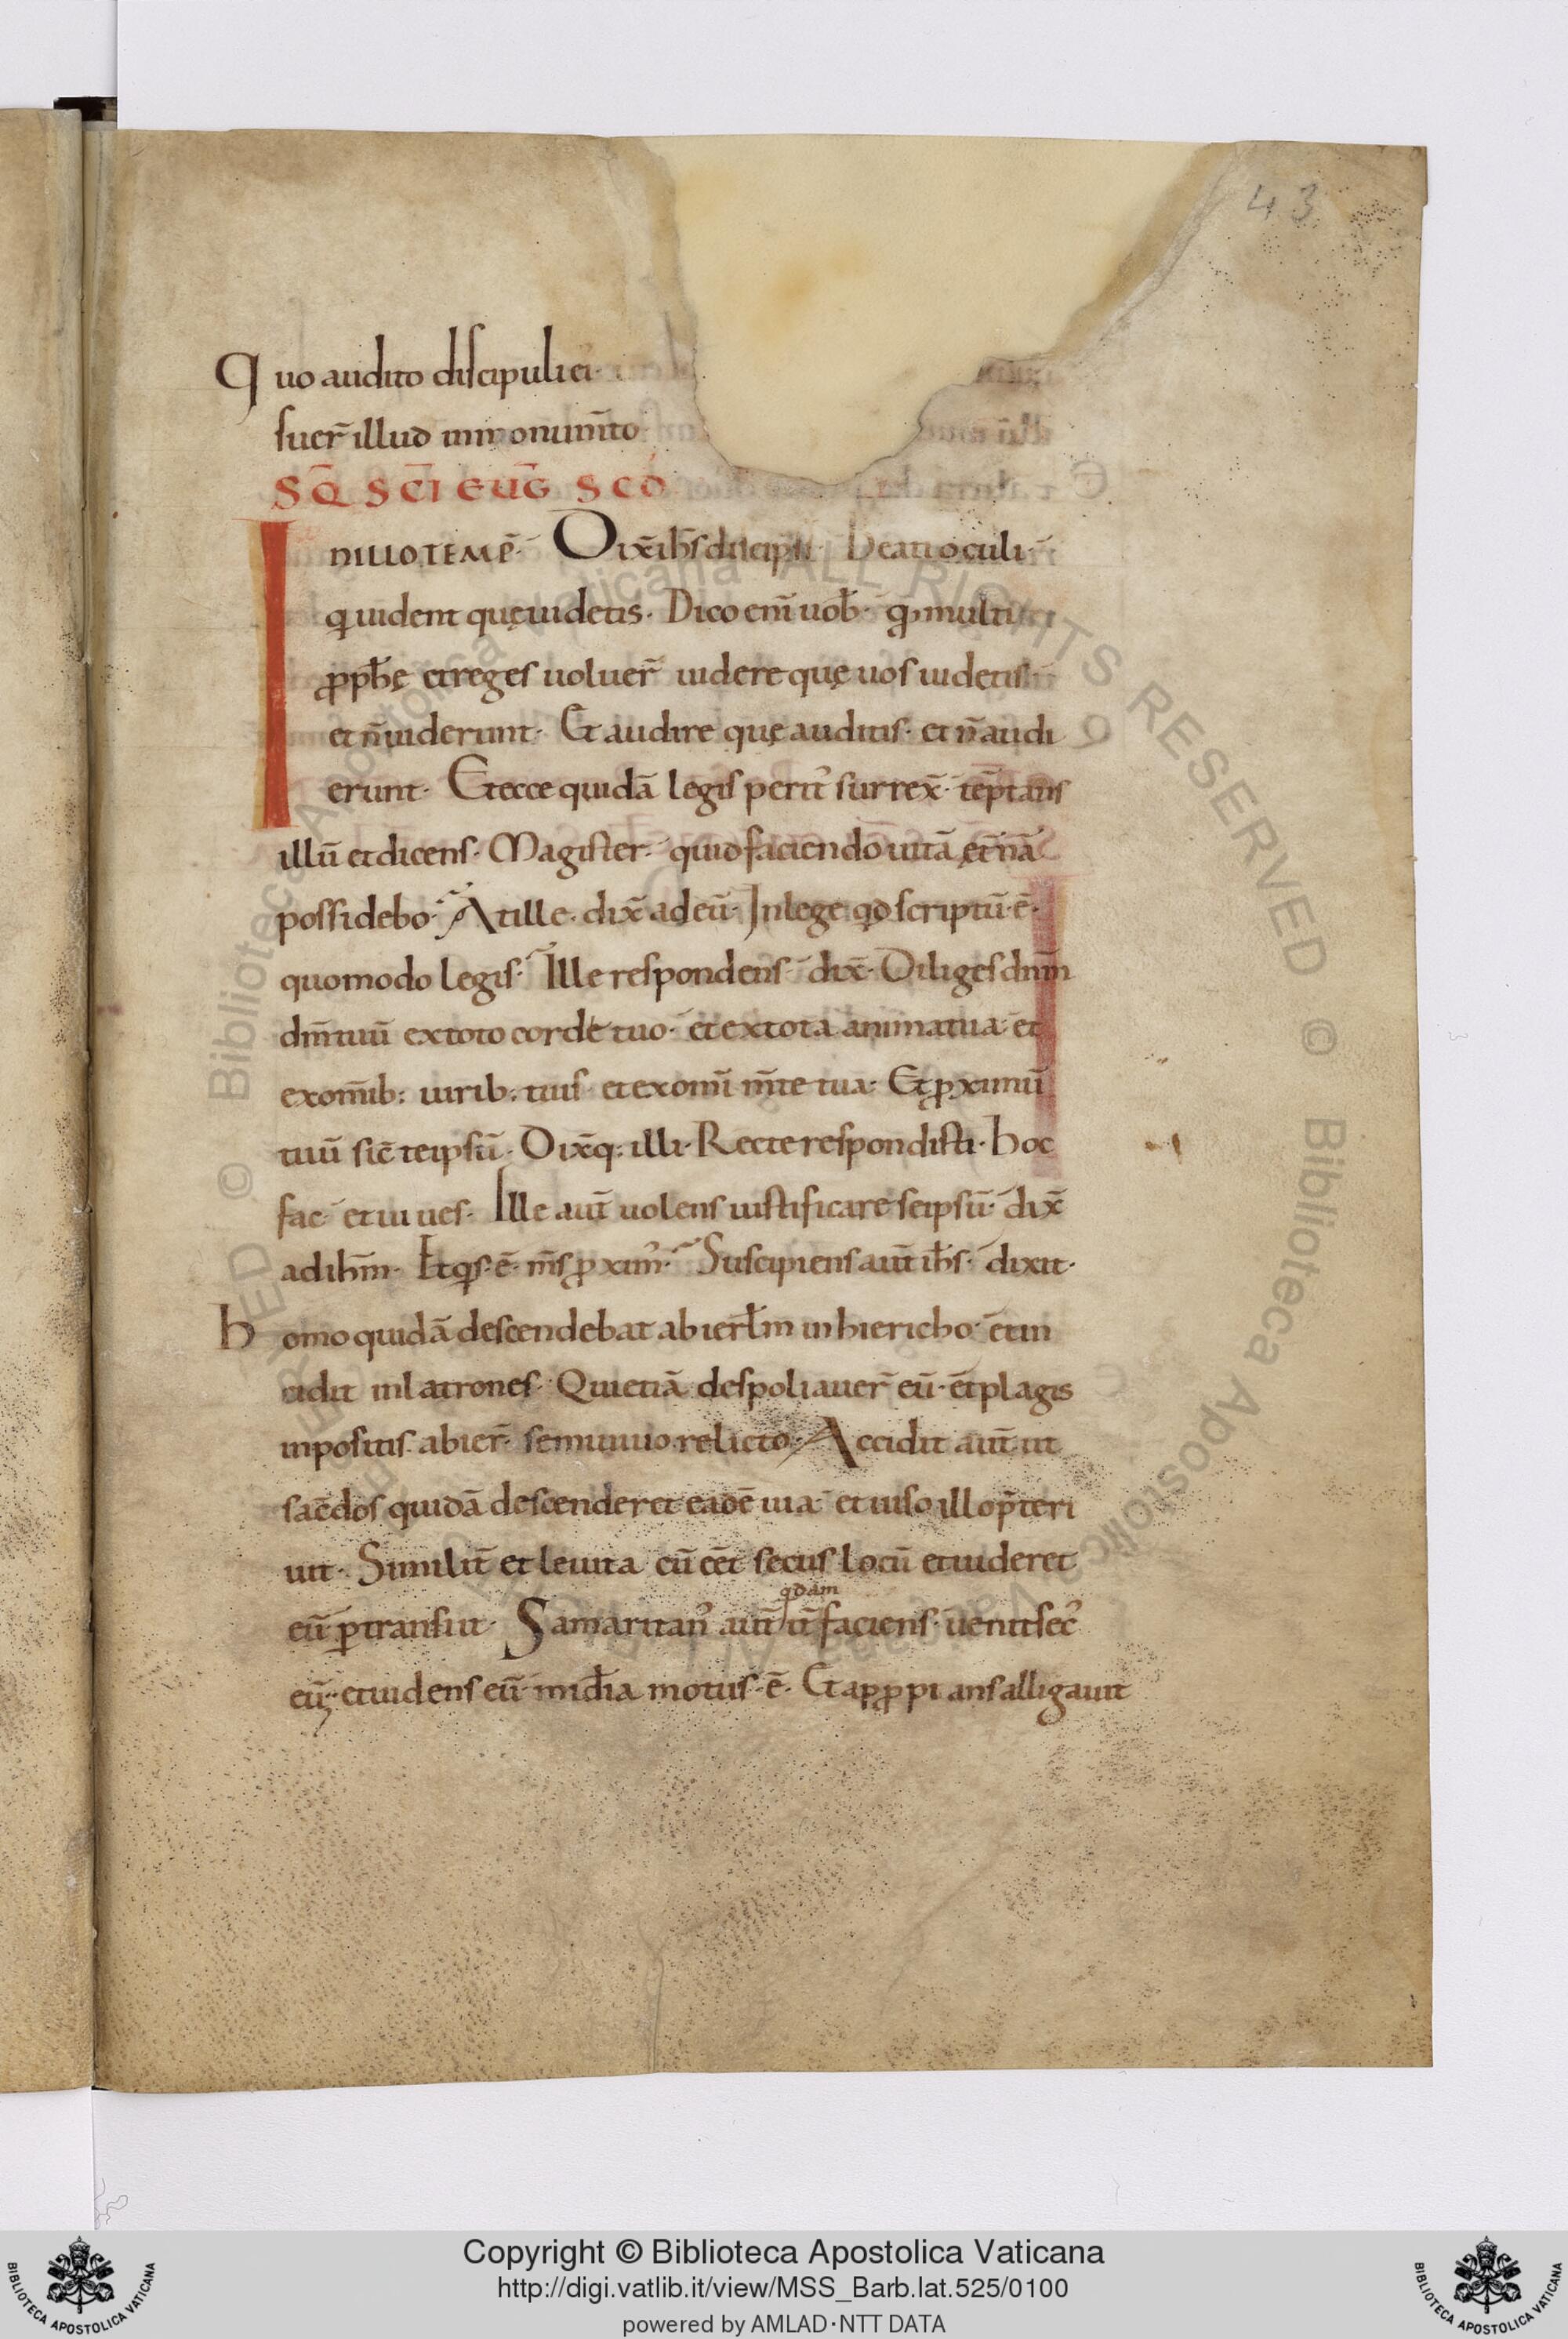 43
Quo audito discipuli ei
suer̄ illud in monum̄to
SQ̄ SC̄I EUG̅ S̄ C̄D
INILLOTEMP̄· Dix̄ ih̄s discipl̄i· Beati oculi·
qui uident quę uidetis· Dico eni̅ uob̄· qd̄ multi
ꝓph̄ę et reges uoluer̄ uidere quę uos uidetis·
et n̄ uiderunt· Et audire quę auditis· et n̄ audi
erunt· Et ecce quidā legis perit᾿ surrex̄· tēptans
illū et dicens· Magister· quid faciendo uitā et̄nā
possidebo· At ille· dix̄ ad eū· In lege qd scriptū· ē·
quomodo legis· Ille respondens· dix̄· Diliges dn̄m
dm̄ tuū ex toto corde tuo· et ex tota anima tua· et
ex om̄ib: uirib: tuis et ex omi̅ m̄te tua· Et ꝓximū
tuū sic̄ te ipsū· Dix̄q: illi· Recte respondisti· hoc
fac· et uiues· Ille aut̄ uolens iustificare se ipsū· dix̄
ad ih̄m· Et qis· ē· m̄s ꝓxim᾿· Suscipiens aut̄ ih̄s· dixit·
homo quidā descendebat ab ierl̄m in hiericho· et in
cidit in latrones· Qui etiā despoliauer̄ eū· et plagis
inpositis· abier̄· semiuiuo relicto· Accidit aut̄ ut
sac̄dos quidā descenderet eadē uia· et uiso illo p̄teri
uit· Similit̄ et leuita cū cēt secus locū et uideret
qdam
eū ꝑtransiit· Samaritan᾿ aut̄ it̄ faciens· uenit sec᾿
eū· et uidens eū· mid̄ia motus· ē· Et apꝓpians alligauit
Copyright © Biblioteca Apostolica Vaticana
http://digi.vatlib.it/view/MSS_Barb.lat.525/0100
powered by AMLAD·NTT DATA